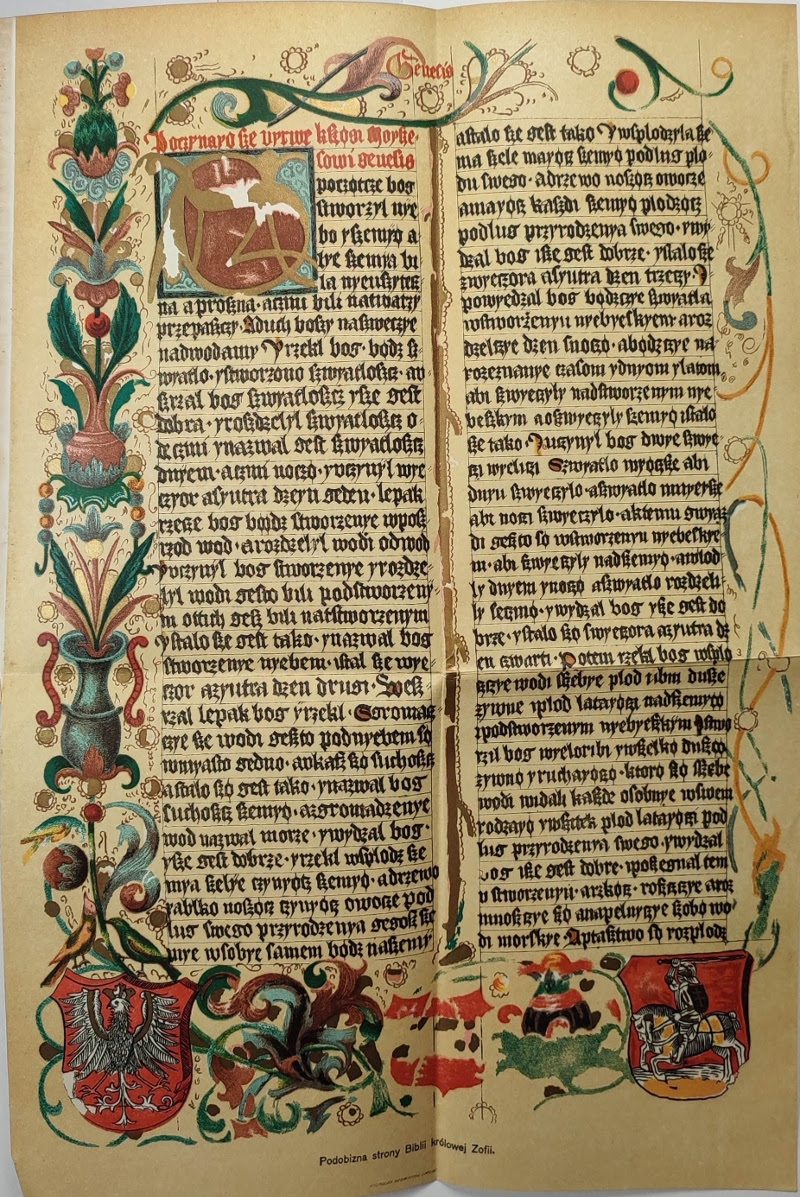 Genesis
Poczynayø sze pyrwe ksszøgi Moyże-
szowi genesis
poczøtcze bog
stworzyl nye
bo y szemyø a
lye szemya bi
la nyeuszytcz
na a prozna · a czmi bili natwarzy
przepaszczy · Aduch boszy naszwyeczye
nadwodamy Yrzekl bog · bødz sz-
wyatlo · ystworzono szwyatloszcz · au
szrzal bog szwyatloszcz ysze gest
dobra · yrozdzelyl szwyatloszcz o-
de czmi ynazwal gest szwyatloszcz
dnyem · a czmi noczø · yuczynyl wye
czyor asyutra dzeyn geden · lepak
rzecze bog bødz stworzenye wposz
rzod wod · arozdzelyl wodi odwod
Yuczynyl bog stworzenye yrozdze-
lyl wodi gesto bili podstworzeny-
m ottich gesz bili nadstworzenym
Ystalo sze gest tako · ynazwal bog
stworzenye nyebem · istal sze wye-
czor azyutra dzen drugi · Szesz
rzal lepak bog yrzekl · Sgromadz
czye sze wodi geszto podnyebem sø
wmyasto gedno · aukasz szø suchoszcz
astalo szø gest tako · ynazwal bog
suchoszcz szemyø · azgromadzenye
wod nazwal morze · ywydzal bog ·
ysze gest dobrze · yrzekl wsplodz sze
mya szelye czynyøcz szemyø · adrzewo
yablko noszøcz czynyøcz owocze pod
lug swego przyrodzenya gegosz sze
mye wsobye samem bødz naszemy
astalo sze gest tako Ywsplodzyla sze
mya szele mayøcz szemyø podlug plo-
du swego · adrzewo noszøcz owocze
amayøcz kaszdi szemyø plodzøcz
podlug przyrodzenya swego · ywy
dzal bog isze gest dobrze · ystalo sze
zwyeczora asyutra dzen trzeczy · Y
powyedzal bog bødzcye szwyatla
wstworzenyu nyebyeskyem aroz
dzelczye dzen snoczø · abødzcye na-
rozeznanye czasom ydnyom ylatom
abi szwyeczyly nadstworzenym nye
beszkym aoszwyeczyly szemyø istalo
sze tako · Yuczynyl bog dwye szwye
czi wyelyczi Szwyatlo wyøcze abi
dnyu szwyeczylo · aszwyatlo mnyeysze
abi noczi szwyeczylo · aktemu gwyaz
di geszto so wstworzenyu nyebeskye-
m · abi szwyeczyly nadszemyø · awlod-
ly dnyem ynoczø aszwyatlo rozdzeli-
ly seczmø · ywydzal bog ysze gest do
brze · ystalo szø swyeczora azyutra dz
en czwarti · Potem rzekl bog wsplo
dzczye wodi szebye plod ribni dusze
zywne yplod latayøczi nadszemyø
podstworzenym nyebyeszkym Ystwo
rzil bog wyeloribi ywszelko duszø
zywnø yruchayøczø · ktorø szø szebe
wodi widali kaszde osobnye wswem
rodzayo ywszitek plod latayøczi pod
lug przyrodzenya swego · ywydzal
bog isze gest dobre · iposzegnal tem
u stworzenyu · arzkøcz · rosczczye aroz
mnoszczye szø anapelnyczye szobø wo-
di morskye Aptasztwo sø rozplodz
Podobizna strony Biblii królowej Zofii.